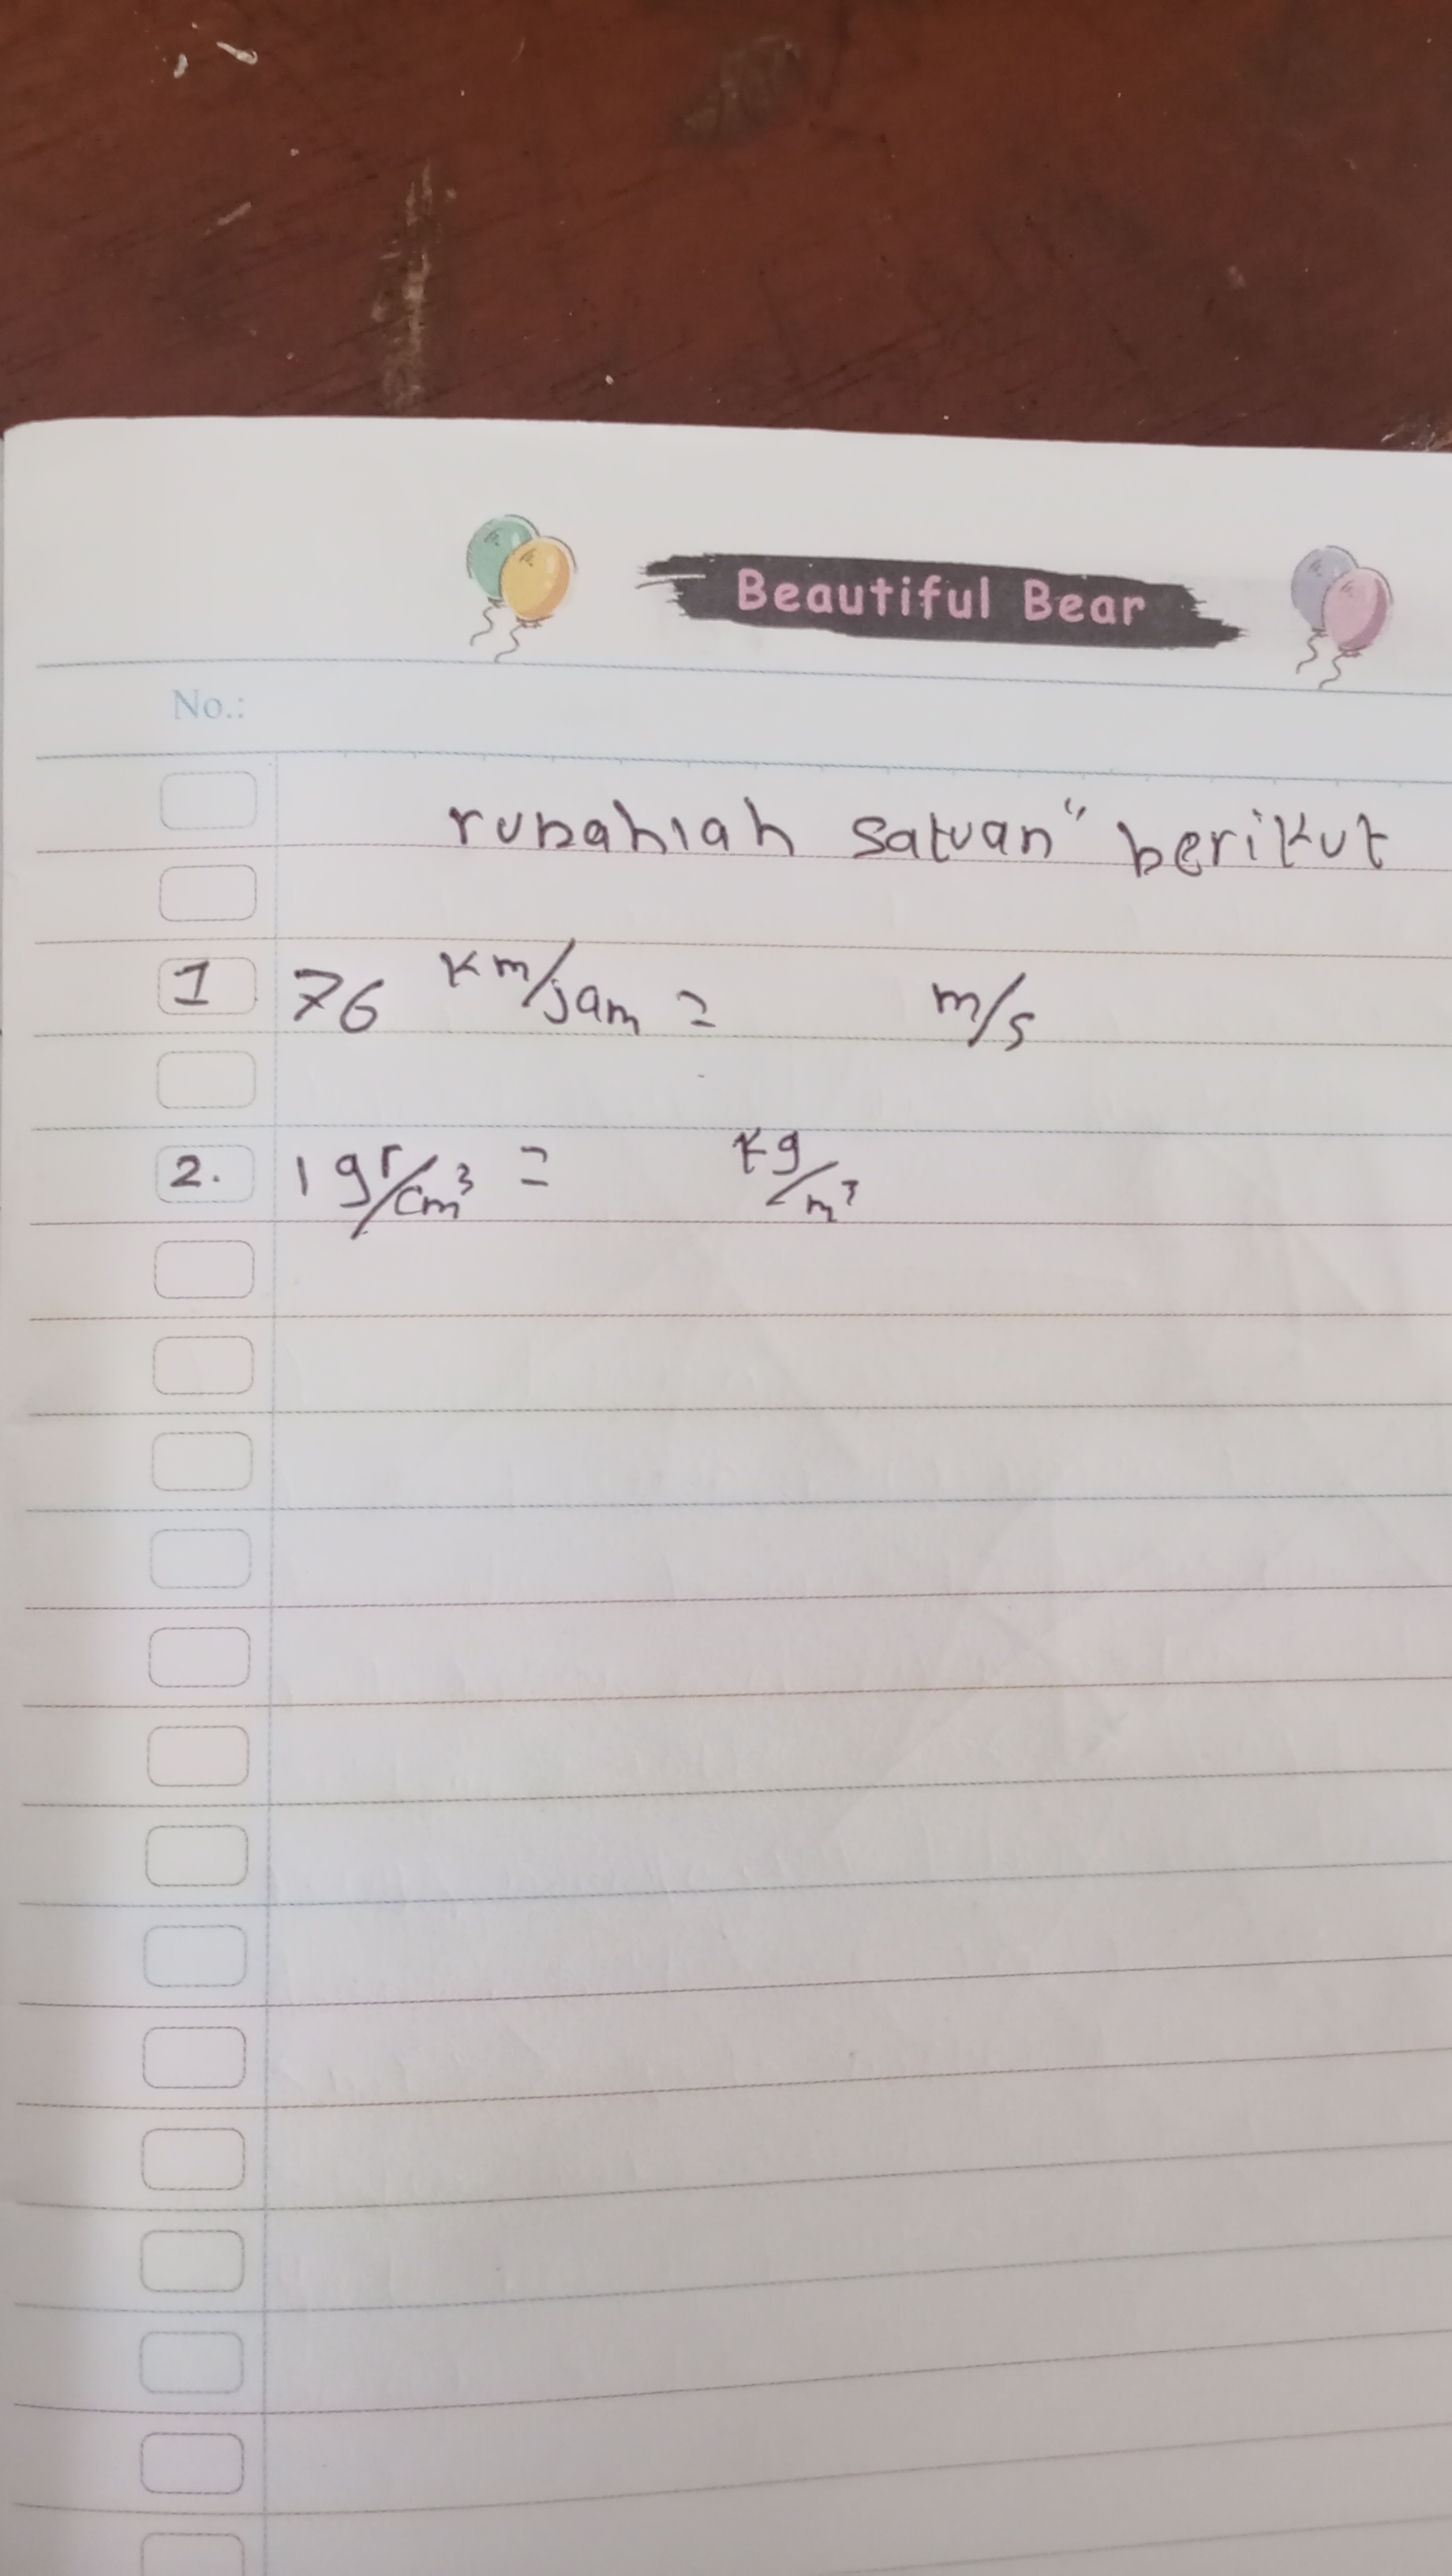 Beautiful Bear
No.:
rubahlah satuan" berikut
1 76 km/jam = m/s
2. 1 gr/cm³ = kg/m³